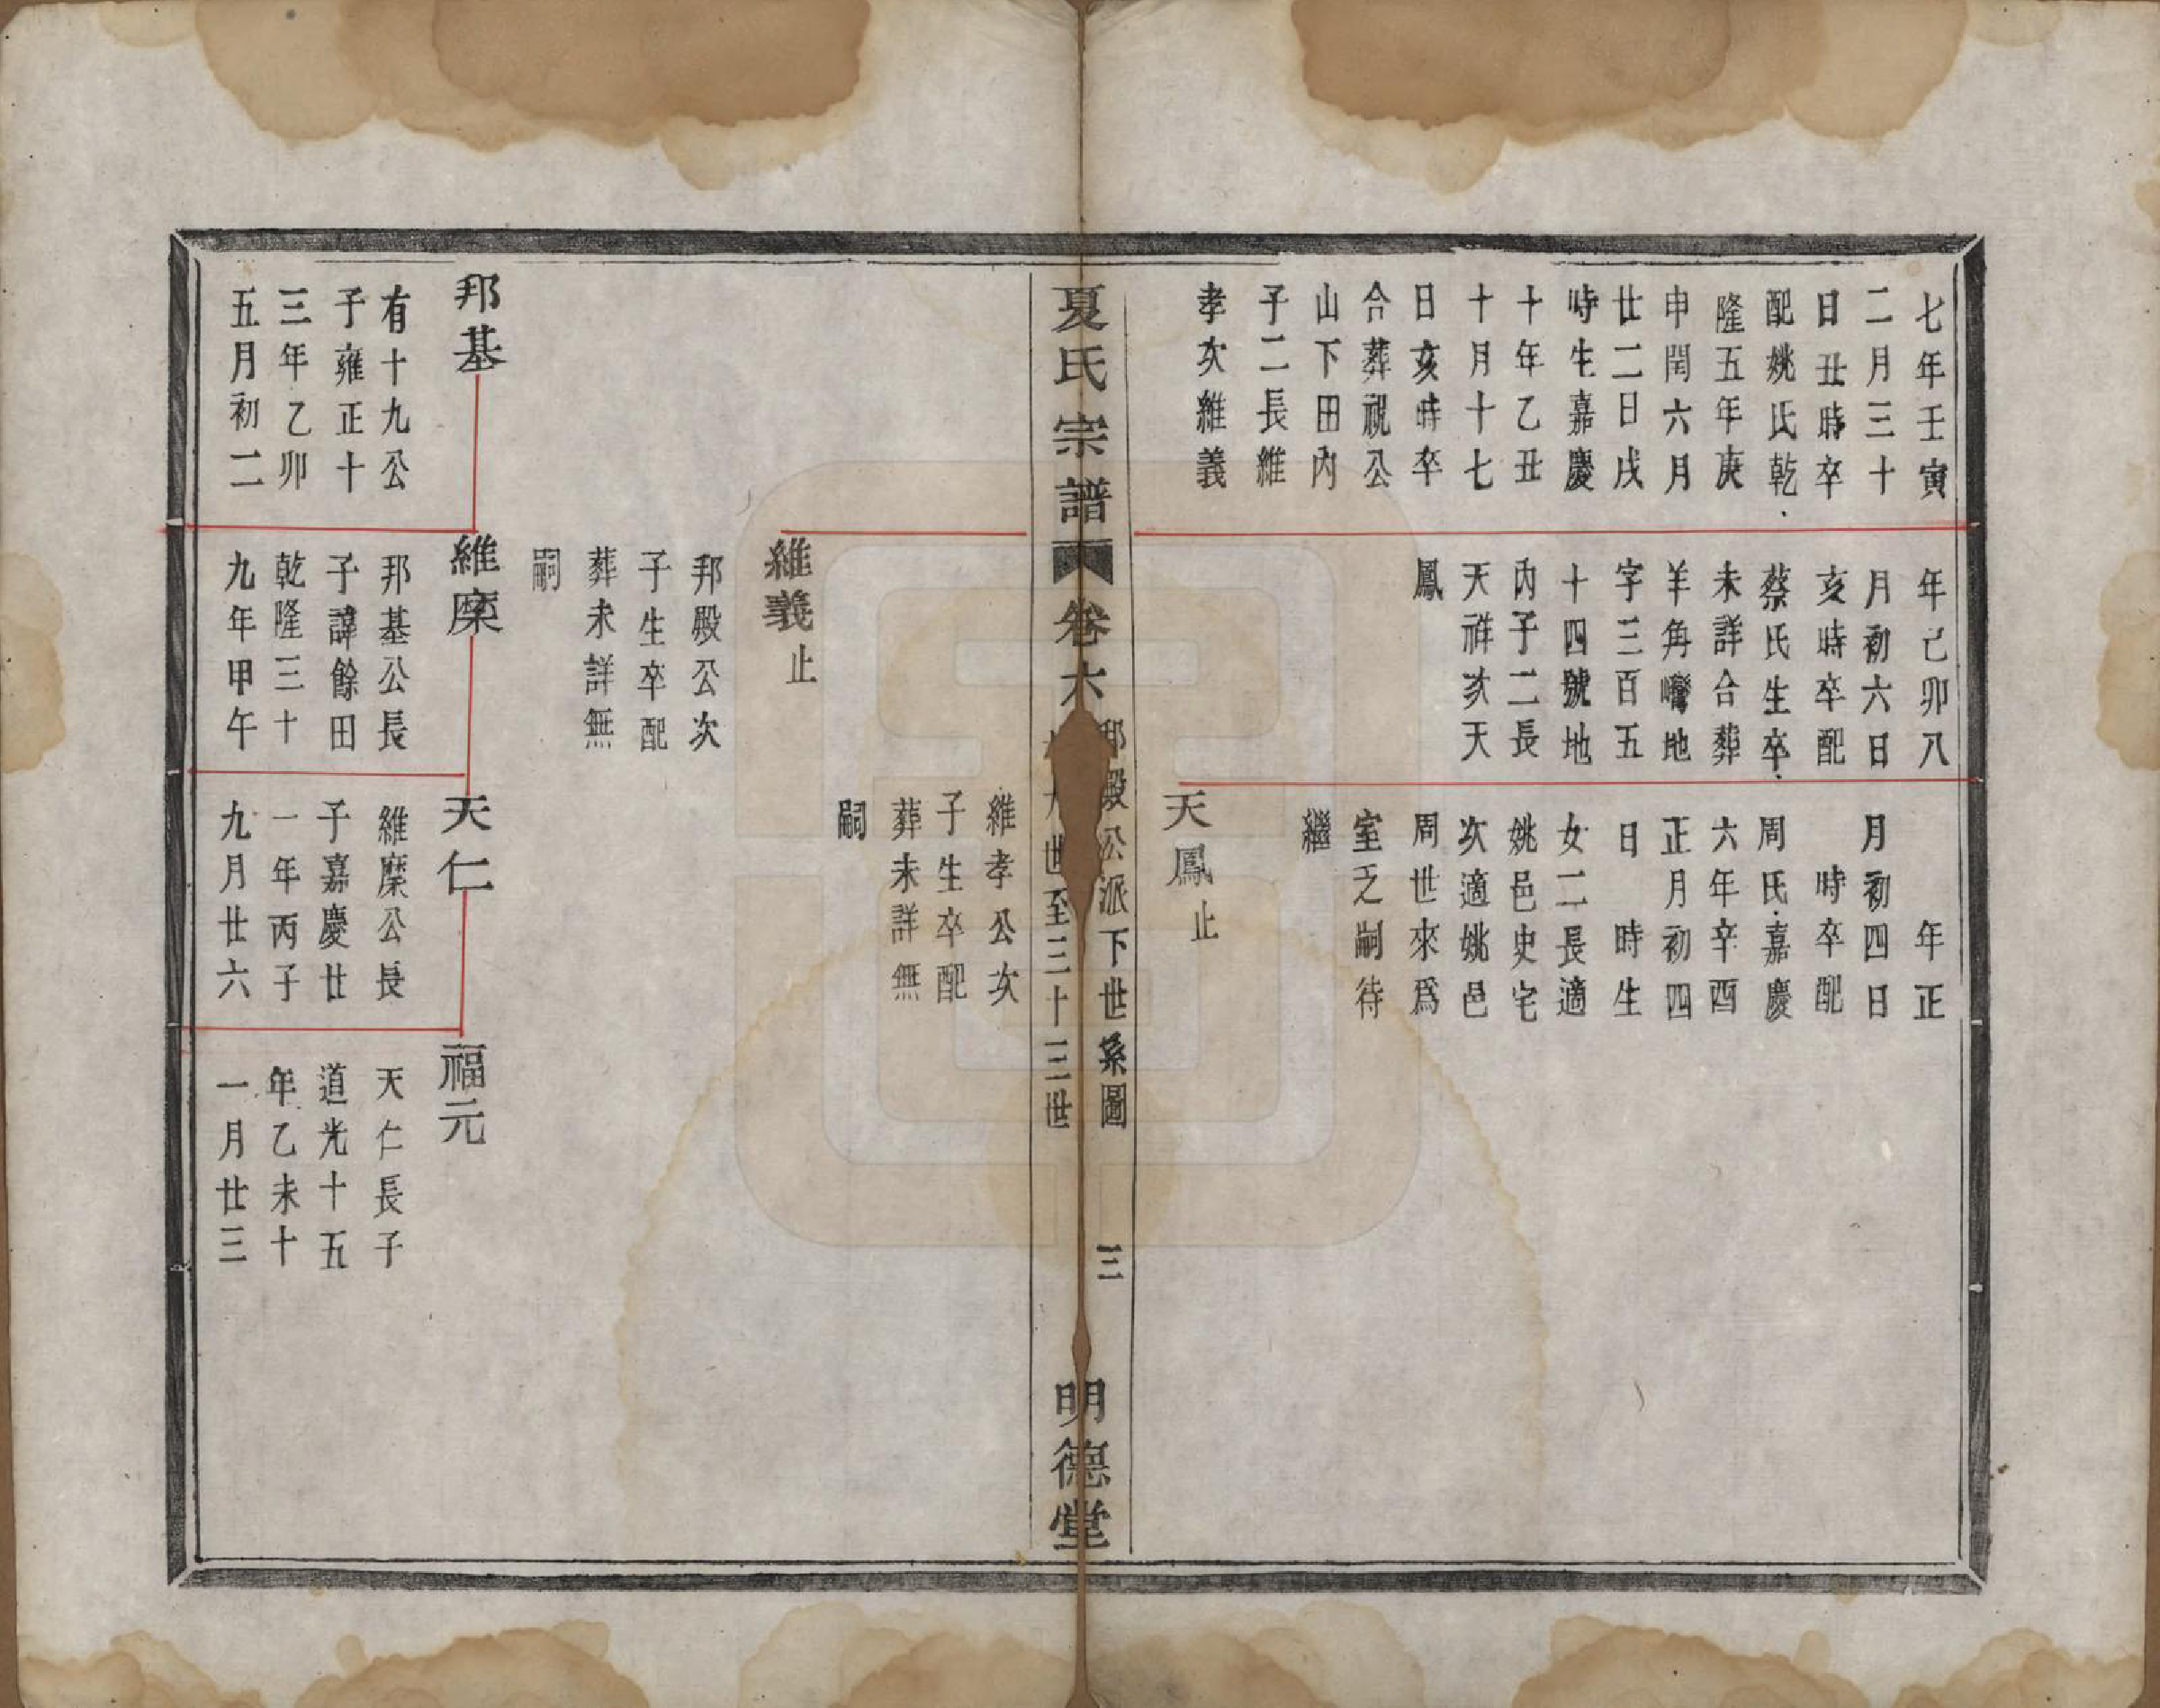 七年壬寅
二月三十
日丑時卒
配姚氏乾
隆五年庚
申閏六月
廿二日戌
時生嘉慶
十年乙丑
十月十七
日亥時卒
合葬祝公
山下田內
子二長維
孝次維義
年己卯八
月初六日
亥時卒配
蔡氏生卒
未詳合葬
羊角嘴地
字三百五
十四號地
內子二長
天祥次天
鳳
年正
月初四日
時卒配
周氏嘉慶
六年辛酉
正月初四
日 時生
女二長適
姚邑史宅
次適姚邑
周世來為
室乏嗣待
繼
天鳳止
夏氏宗譜 卷六
邦殿公派下世系圖
世至三十三世
三
明德堂
維孝公次
子生卒配
葬未詳無
嗣
維義止
邦殿公次
子生卒配
葬未詳無
嗣
邦基
有十九公
子雍正十
三年乙卯
五月初二
維糜
邦基公長
子諱餘田
乾隆三十
九年甲午
天仁
維糜公長
子嘉慶廿
一年丙子
九月廿六
福元
天仁長子
道光十五
年乙未十
一月廿三